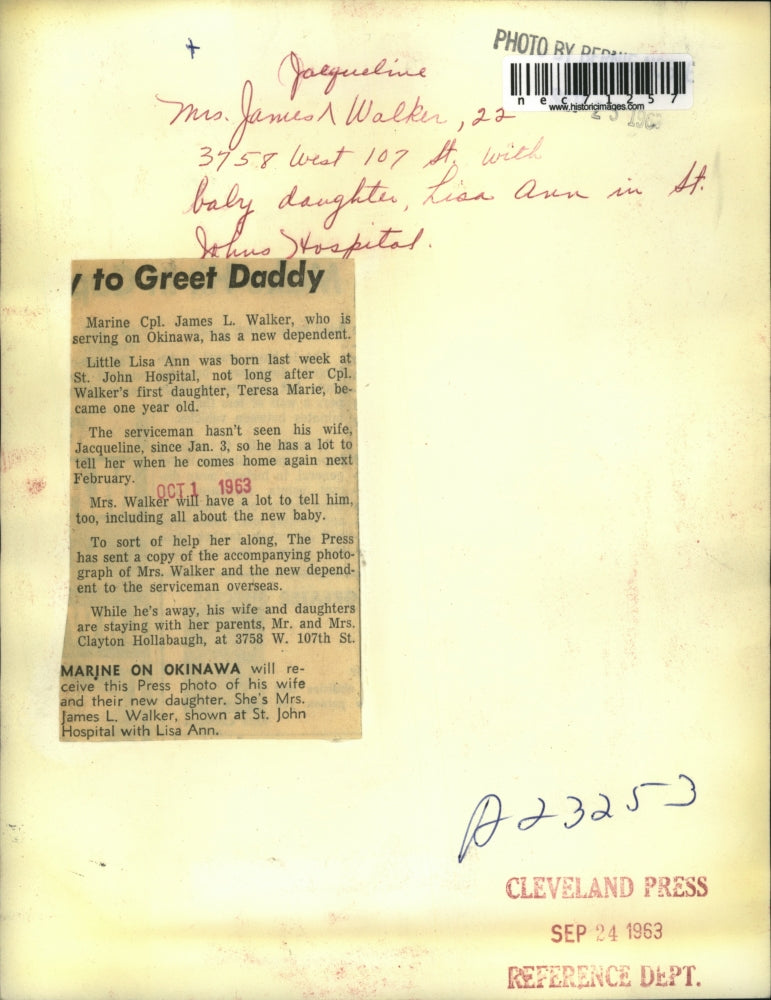 PHOTO BY
nec71257
www.historicimages.com
23 1963
Jacqueline
Mrs. James Walker, 22
3758 West 107 St. with
baby daughter, Lisa Ann in St.
Johns Hospital.
y to Greet Daddy
Marine Cpl. James L. Walker, who is
serving on Okinawa, has a new dependent.
Little Lisa Ann was born last week at
St. John Hospital, not long after Cpl.
Walker's first daughter, Teresa Marie, be-
came one year old.
The serviceman hasn't seen his wife,
Jacqueline, since Jan. 3, so he has a lot to
tell her when he comes home again next
February.
OCT 1 1963
Mrs. Walker will have a lot to tell him,
too, including all about the new baby.
To sort of help her along, The Press
has sent a copy of the accompanying photo-
graph of Mrs. Walker and the new depend-
ent to the serviceman overseas.
While he's away, his wife and daughters
are staying with her parents, Mr. and Mrs.
Clayton Hollabaugh, at 3758 W. 107th St.
MARINE ON OKINAWA will re-
ceive this Press photo of his wife
and their new daughter. She's Mrs.
James L. Walker, shown at St. John
Hospital with Lisa Ann.
A23253
CLEVELAND PRESS
SEP 24 1963
REFERENCE DEPT.